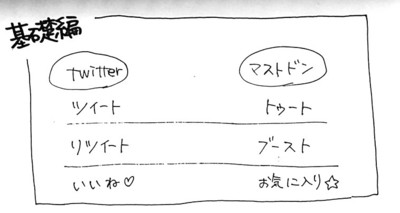 基礎編
twitter マストドン
ツイート トゥート
リツイート ブースト
いいね♡ お気に入り☆